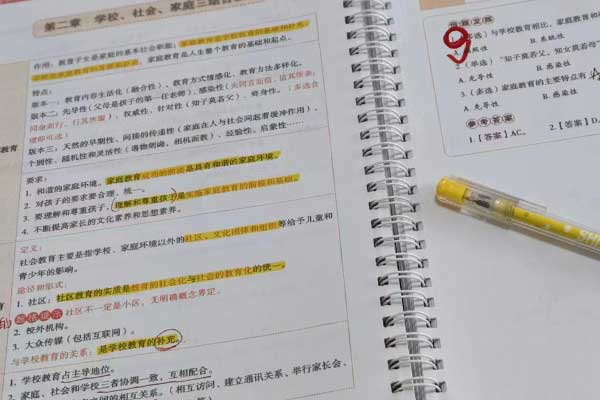 第二章 学校、社会、家庭三结合
作用：教育子女是家庭的基本社会职能；家庭教育是学校教育的基础和补充。
家庭教育是人生整个教育的基础和起点。
特点：
版本一：教育内容生活化（融合性）、教育方式情感化、教育方法多样化。
版本二：先导性（父母是孩子的第一任老师）、感染性
同命而行，行其所服）、权威性、针对性（知子莫若父）、终身性。（多选合
理即可选）
版本三：天然的早期性、间接的传递性（家庭在人与社会间起着缓冲作用）、
个别性、随机性和灵活性（遇物则诲，相机而教）、经验性、启蒙性……
要求：
1. 和谐的家庭环境。家庭教育成功的前提是具有和谐的家庭环境。
2. 对孩子的要求要合理、统一。
3. 要理解和尊重孩子，理解和尊重孩子是实施家庭教育的前提和基础。
4. 不断提高家长的文化素养和思想素养。
定义：
社会教育主要是指学校、家庭环境以外的社区、文化团体和组织等给予儿童和
青少年的影响。
途径和形式：
1. 社区：社区教育的实质是教育的社会化与社会的教育化的统一。
社区不一定是小区，无明确概念界定。
2. 校外机构。
3. 大众传媒（包括互联网）。
与学校教育的关系：是学校教育的补充。
1. 学校教育占主导地位。
2. 家庭、社会和学校三者协调一致，互相配合。
之间的相互关系。（相互访问、建立通讯关系、举行家长会、
教育
育
的
9
（多选）与学校教育相比，家庭教育和
A.
2.（单选）“知子莫若父，知女莫若母”
A. 先导性 B. 感染性
3.（多选）家庭教育的主要特点有
A. 先导性 B. 感染性
参考答案
1.【答案】AC。 2.【答案】D。